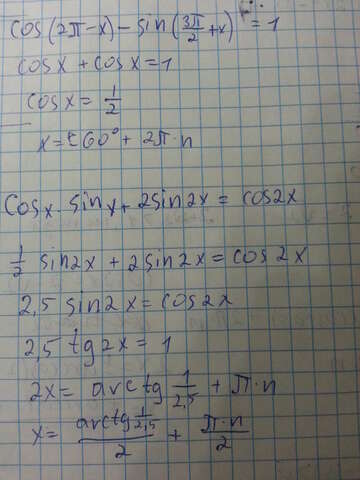 cos(2π-x)-sin(3π/2+x)=1
cosx+cosx=1
cosx=1/2
x=±60°+2π·n
Cosx·sinx+2sin2x=cos2x
1/2 sin2x+2sin2x=cos2x
2,5 sin2x=cos2x
2,5 tg2x=1
2x=arctg 1/2,5+π·n
x=arctg 1/2,5 / 2 + π·n/2